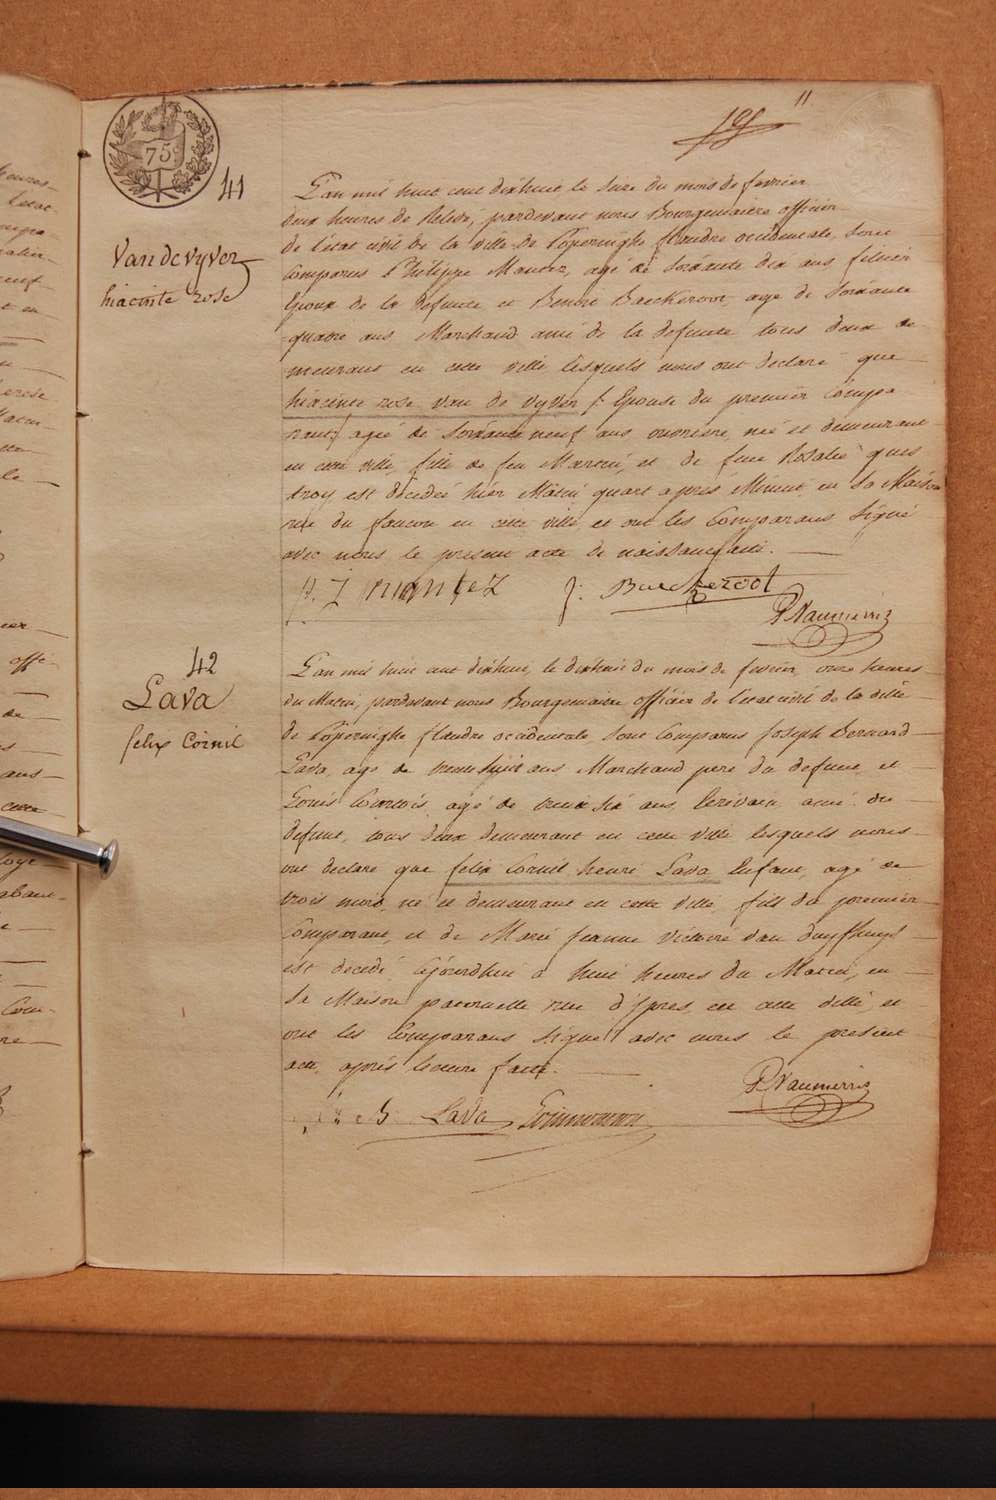 11.
75c
41
Van de vyver
hiacinte rose
L'an mil huit cent dixhuit le seize du mois de fevrier
deux heures de Relevé, pardevant nous Bourgemaitre officier
de l'état civil de la ville de Poperinghe flandre occidentale, sont
Comparus Philippe Mantez, agé de soixante dix ans filtier
Epoux de la defunte et Benoit Baeckeroot agé de soixante
quatre ans Marchand ami de la defunte tous deux de
meurant en cette ville lesquels nous ont declaré que
hiacinte rose van de vyver /: Epouse du premier Compa
rant:/ agée de soixante neuf ans ouvriere, née et demeurant
en cette ville, fille de feu Martin, et de feue Rosalie ques
troy est decedée hier Matin quart apres Minuit en sa Maison
rue du faucon en cette ville et ont les Comparans signé
avec nous le present acte de naissance faite.
P. J Mantez J: Baeckeroot
P Vaumerin
42
Lava
felix Cornil
L'an mil huit cent dixhuit, le dixhuit du mois de fevrier, onze heures
du Matin, pardevant nous Bourgemaitre officier de l'etat civil de la ville
de Poperinghe flandre occidentale, sont Comparus Joseph Bernard
Lava, agé de trente huit ans Marchand pere du defunt, et
Louis Courtois, agé de trente six ans, Ecrivain, ami du
defunt, tous deux demeurant en cette ville lesquels nous
ont declaré que felix Cornil henri Lava Enfant, agé de
trois mois, né et demeurant en cette ville, fils du premier
Comparant, et de Marie Jeanne Victoire van Duyfhuys
est decedé ajourdhui a huit heures du Matin, en
sa Maison paternelle rue d'Ypres, en cette ville, et
ont les Comparans signé avec nous le present
acte, après lecture faite.
Lava
P Vaumerin